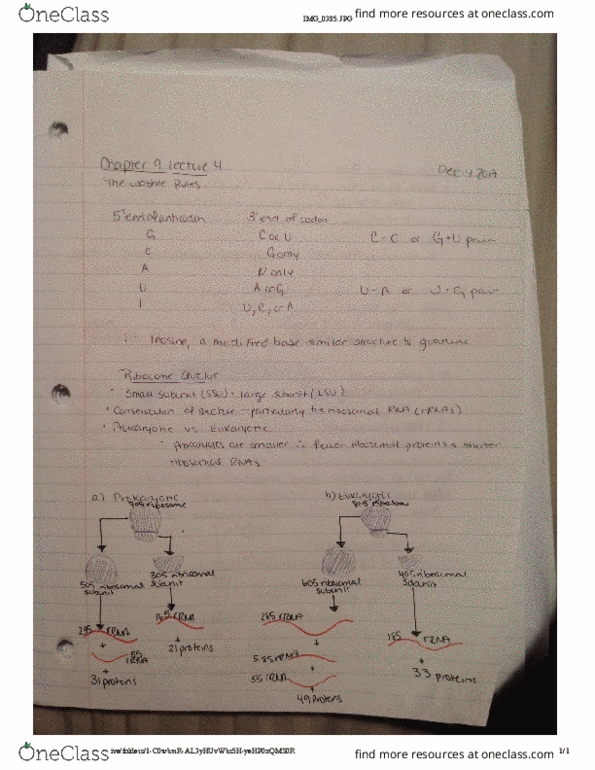 OneClass
IMG_0385.JPG
find more resources at oneclass.com
Chapter 9 lecture 4
Dec 4 2017
The wobble Rules
5' end of anticodon 3' end of codon
G C or U G-C or G•U pair
C G only
A U only
U A or G U-A or U•G pair
I U, C, or A
Inosine, a modified base similar structure to guanine
Ribosome
Small subunit (SSU) + large subunit (LSU)
Conservation of structure - particularly the ribosomal RNA (rRNAs)
Prokaryotic vs Eukaryotic
- prokaryotes are smaller ∴ fewer ribosomal proteins & shorter
ribosomal RNAs
a) Prokaryotic b) Eukaryotic
ribosome
50S ribosomal
subunit
30S ribosomal
subunit
60S ribosomal
subunit
40S ribosomal
subunit
23S rRNA
+
5S
rRNA
+
31 proteins
16S rRNA
+
21 proteins
28S rRNA
+
5.8S rRNA
+
5S rRNA
+
49 proteins
18S rRNA
+
33 proteins
OneClass
find more resources at oneclass.com
1/1